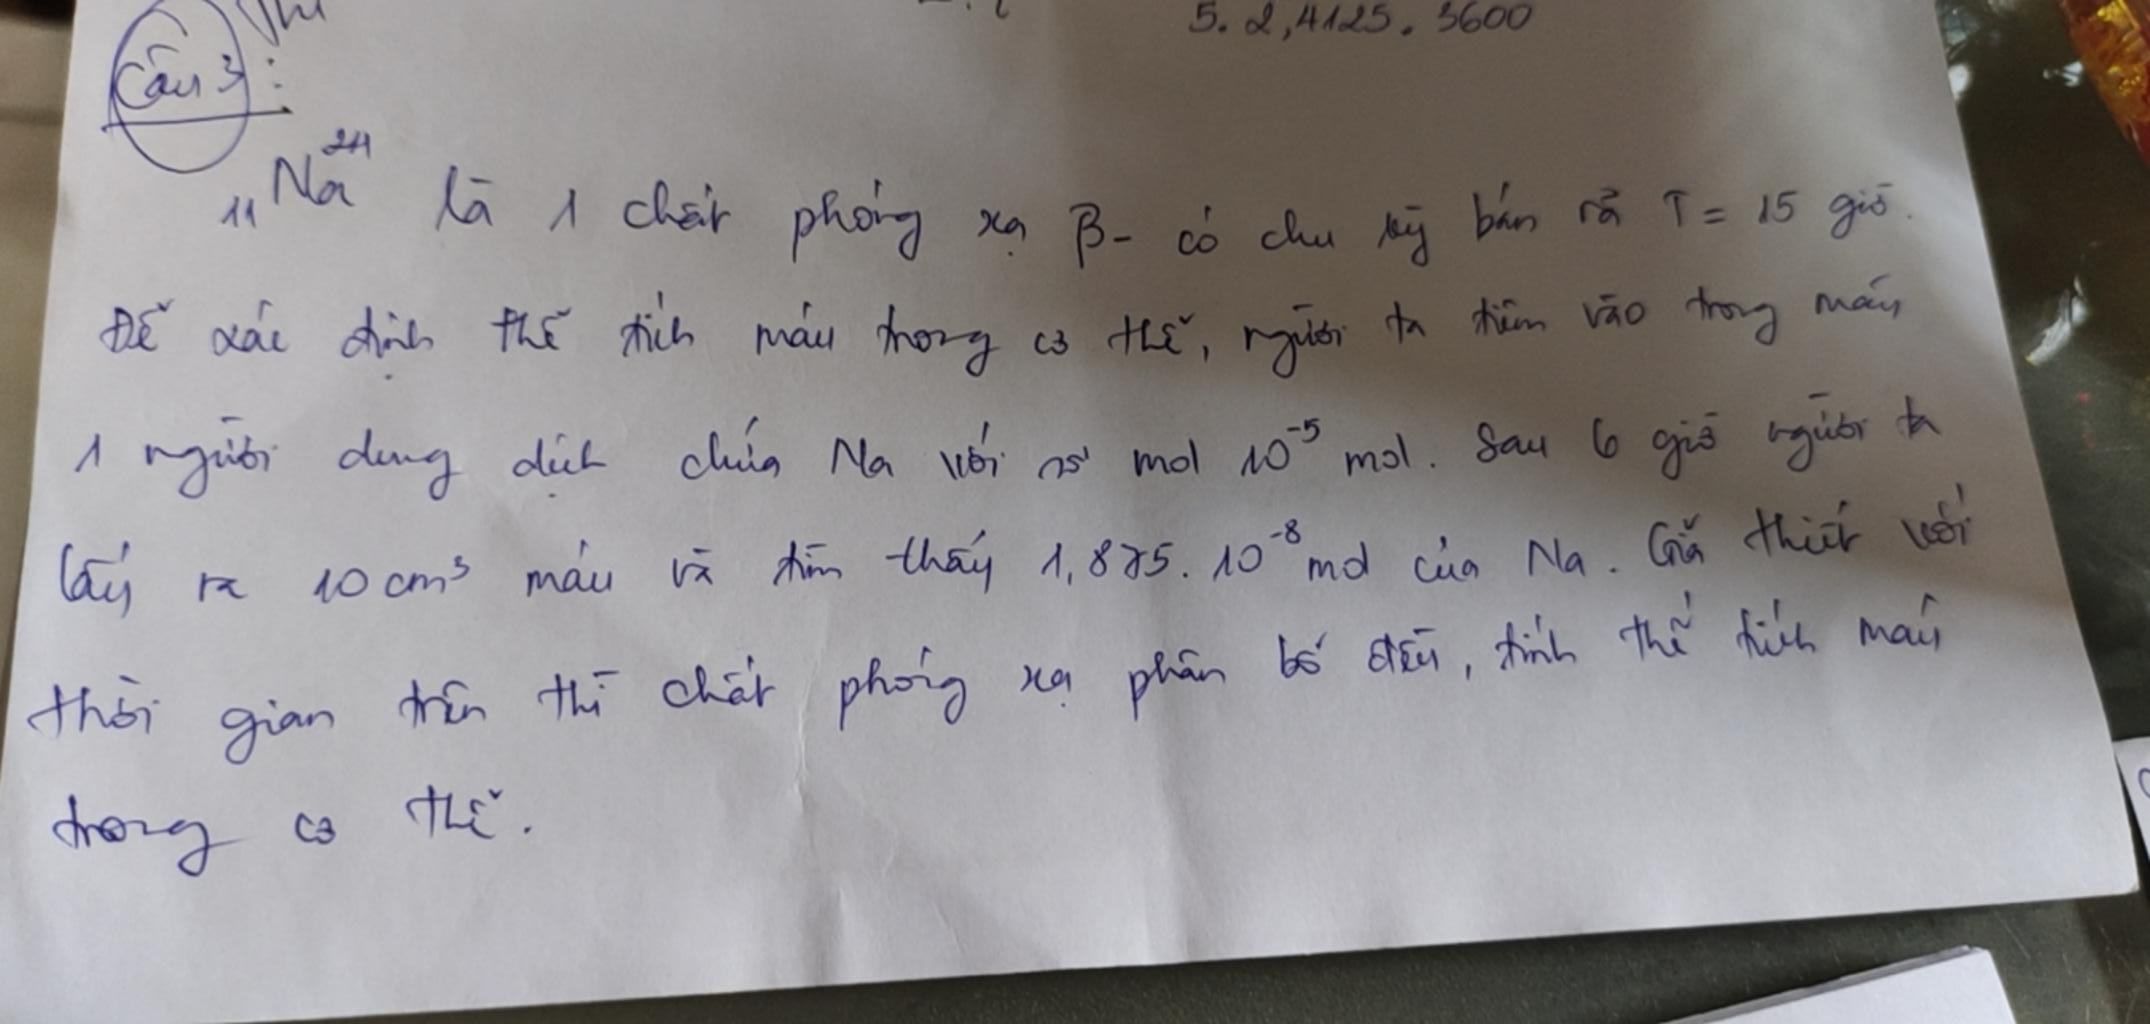 5. 2,4125. 3600
Câu 3:
₁₁Na²⁴ là 1 chất phóng xạ β- có chu kỳ bán rã T = 15 giờ.
Để xác định thể tích máu trong cơ thể, người ta tiêm vào trong máu
1 người dung dịch chứa Na với số mol 10⁻⁵ mol. Sau 6 giờ người ta
lấy ra 10 cm³ máu và tìm thấy 1,875. 10⁻⁸ mol của Na. Giả thiết với
thời gian trên thì chất phóng xạ phân bố đều, tính thể tích máu
trong cơ thể.